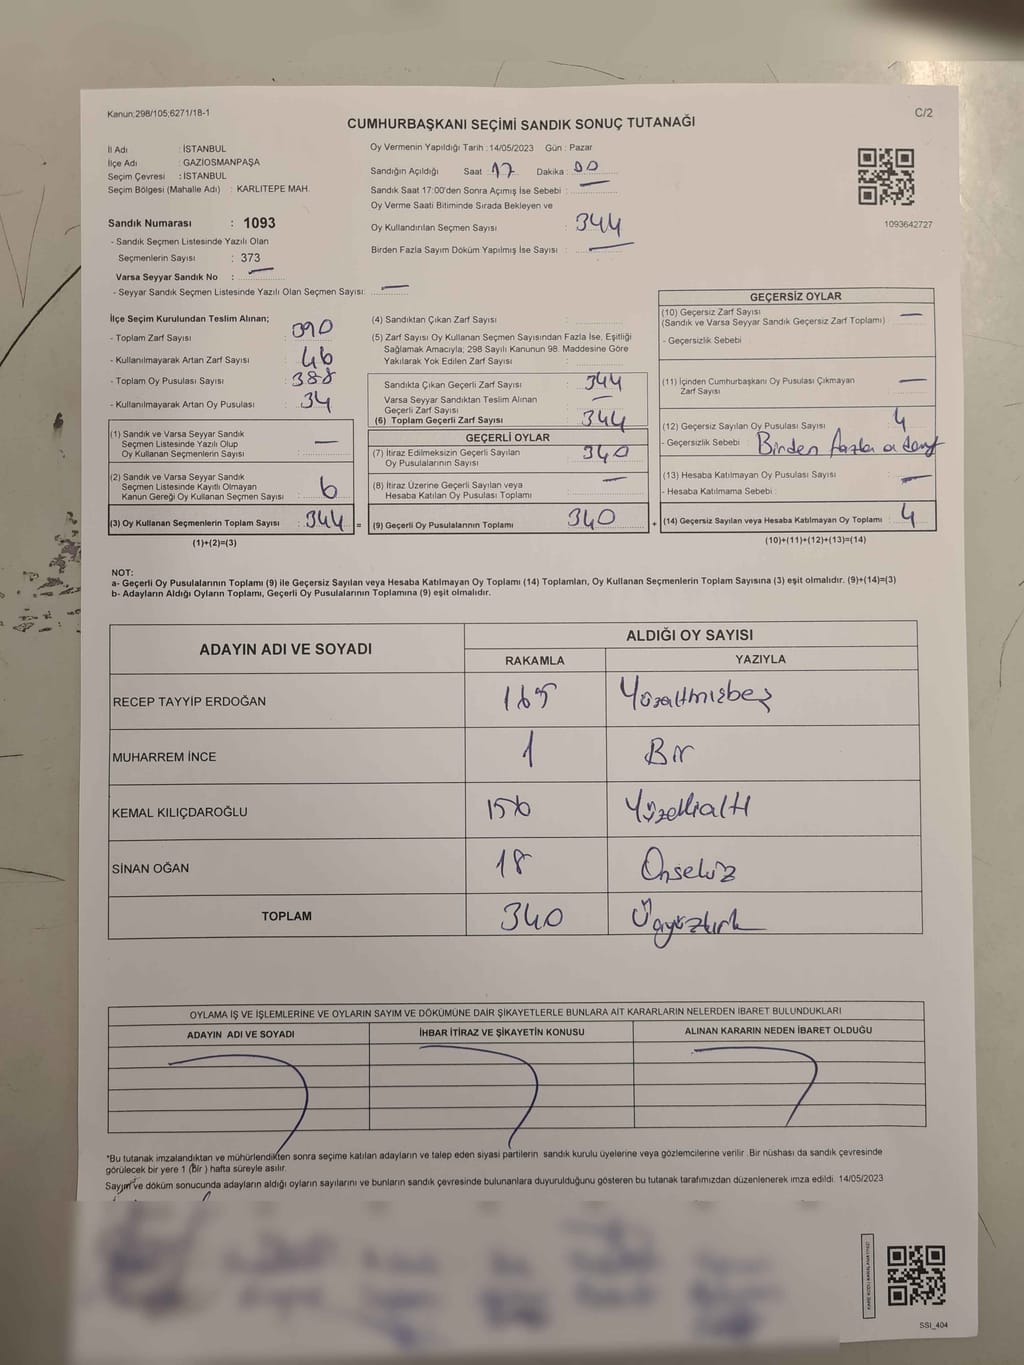 Kanun;298/105;6271/18-1
C/2
CUMHURBAŞKANI SEÇİMİ SANDIK SONUÇ TUTANAĞI
İl Adı : İSTANBUL
İlçe Adı : GAZİOSMANPAŞA
Seçim Çevresi : İSTANBUL
Seçim Bölgesi (Mahalle Adı) : KARLITEPE MAH.
Oy Vermenin Yapıldığı Tarih : 14/05/2023 Gün : Pazar
Sandığın Açıldığı Saat : 17 Dakika : 00
Sandık Saat 17:00'den Sonra Açımış İse Sebebi : —
Oy Verme Saati Bitiminde Sırada Bekleyen ve
Oy Kullandırılan Seçmen Sayısı : 344
Birden Fazla Sayım Döküm Yapılmış İse Sayısı : —
1093642727
Sandık Numarası : 1093
- Sandık Seçmen Listesinde Yazılı Olan
Seçmenlerin Sayısı : 373
Varsa Seyyar Sandık No : —
- Seyyar Sandık Seçmen Listesinde Yazılı Olan Seçmen Sayısı: —
İlçe Seçim Kurulundan Teslim Alınan;
- Toplam Zarf Sayısı : 390
- Kullanılmayarak Artan Zarf Sayısı : 46
- Toplam Oy Pusulası Sayısı : 388
- Kullanılmayarak Artan Oy Pusulası : 34
(1) Sandık ve Varsa Seyyar Sandık
Seçmen Listesinde Yazılı Olup
Oy Kullanan Seçmenlerin Sayısı : —
(2) Sandık ve Varsa Seyyar Sandık
Seçmen Listesinde Kayıtlı Olmayan
Kanun Gereği Oy Kullanan Seçmen Sayısı : 6
(3) Oy Kullanan Seçmenlerin Toplam Sayısı : 344 =
(1)+(2)=(3)
(4) Sandıktan Çıkan Zarf Sayısı :
(5) Zarf Sayısı Oy Kullanan Seçmen Sayısından Fazla İse, Eşitliği
Sağlamak Amacıyla, 298 Sayılı Kanunun 98. Maddesine Göre
Yakılarak Yok Edilen Zarf Sayısı :
Sandıkta Çıkan Geçerli Zarf Sayısı : 344
Varsa Seyyar Sandıktan Teslim Alınan
Geçerli Zarf Sayısı : —
(6) Toplam Geçerli Zarf Sayısı : 344
GEÇERLİ OYLAR
(7) İtiraz Edilmeksizin Geçerli Sayılan
Oy Pusulalarının Sayısı : 340
(8) İtiraz Üzerine Geçerli Sayılan veya
Hesaba Katılan Oy Pusulası Toplamı : —
(9) Geçerli Oy Pusulalarının Toplamı : 340 +
GEÇERSİZ OYLAR
(10) Geçersiz Zarf Sayısı
(Sandık ve Varsa Seyyar Sandık Geçersiz Zarf Toplamı) : —
- Geçersizlik Sebebi :
(11) İçinden Cumhurbaşkanı Oy Pusulası Çıkmayan
Zarf Sayısı : —
(12) Geçersiz Sayılan Oy Pusulası Sayısı : 4
- Geçersizlik Sebebi : Birden fazla aday
(13) Hesaba Katılmayan Oy Pusulası Sayısı : —
- Hesaba Katılmama Sebebi :
(14) Geçersiz Sayılan veya Hesaba Katılmayan Oy Toplamı : 4
(10)+(11)+(12)+(13)=(14)
NOT:
a- Geçerli Oy Pusulalarının Toplamı (9) ile Geçersiz Sayılan veya Hesaba Katılmayan Oy Toplamı (14) Toplamları, Oy Kullanan Seçmenlerin Toplam Sayısına (3) eşit olmalıdır. (9)+(14)=(3)
b- Adayların Aldığı Oyların Toplamı, Geçerli Oy Pusulalarının Toplamına (9) eşit olmalıdır.
ADAYIN ADI VE SOYADI
ALDIĞI OY SAYISI
RAKAMLA YAZIYLA
RECEP TAYYİP ERDOĞAN 165 Yüzaltmışbeş
MUHARREM İNCE 1 Bir
KEMAL KILIÇDAROĞLU 156 Yüzellialtı
SİNAN OĞAN 18 Onsekiz
TOPLAM 340 Üçyüzkırk
OYLAMA İŞ VE İŞLEMLERİNE VE OYLARIN SAYIM VE DÖKÜMÜNE DAİR ŞİKAYETLERLE BUNLARA AİT KARARLARIN NELERDEN İBARET BULUNDUKLARI
ADAYIN ADI VE SOYADI İHBAR İTİRAZ VE ŞİKAYETİN KONUSU ALINAN KARARIN NEDEN İBARET OLDUĞU
*Bu tutanak imzalandıktan ve mühürlendikten sonra seçime katılan adayların ve talep eden siyasi partilerin sandık kurulu üyelerine veya gözlemcilerine verilir. Bir nüshası da sandık çevresinde
görülecek bir yere 1 (Bir ) hafta süreyle asılır.
Sayım ve döküm sonucunda adayların aldığı oyların sayılarını ve bunların sandık çevresinde bulunanlara duyurulduğunu gösteren bu tutanak tarafımızdan düzenlenerek imza edildi. 14/05/2023
SSI_404